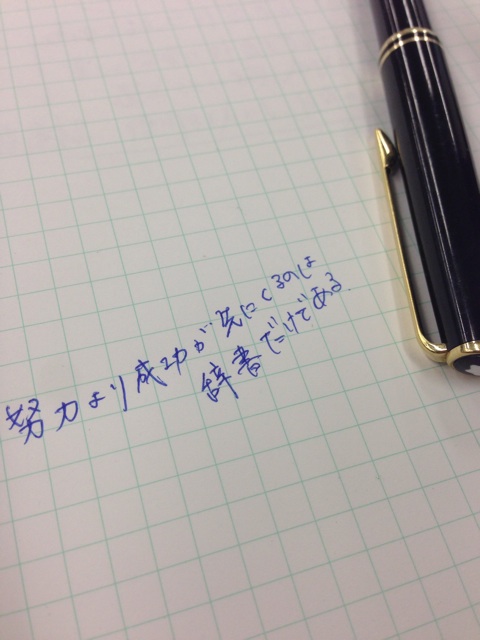 努力より成功が先にくるのは
辞書でだけである